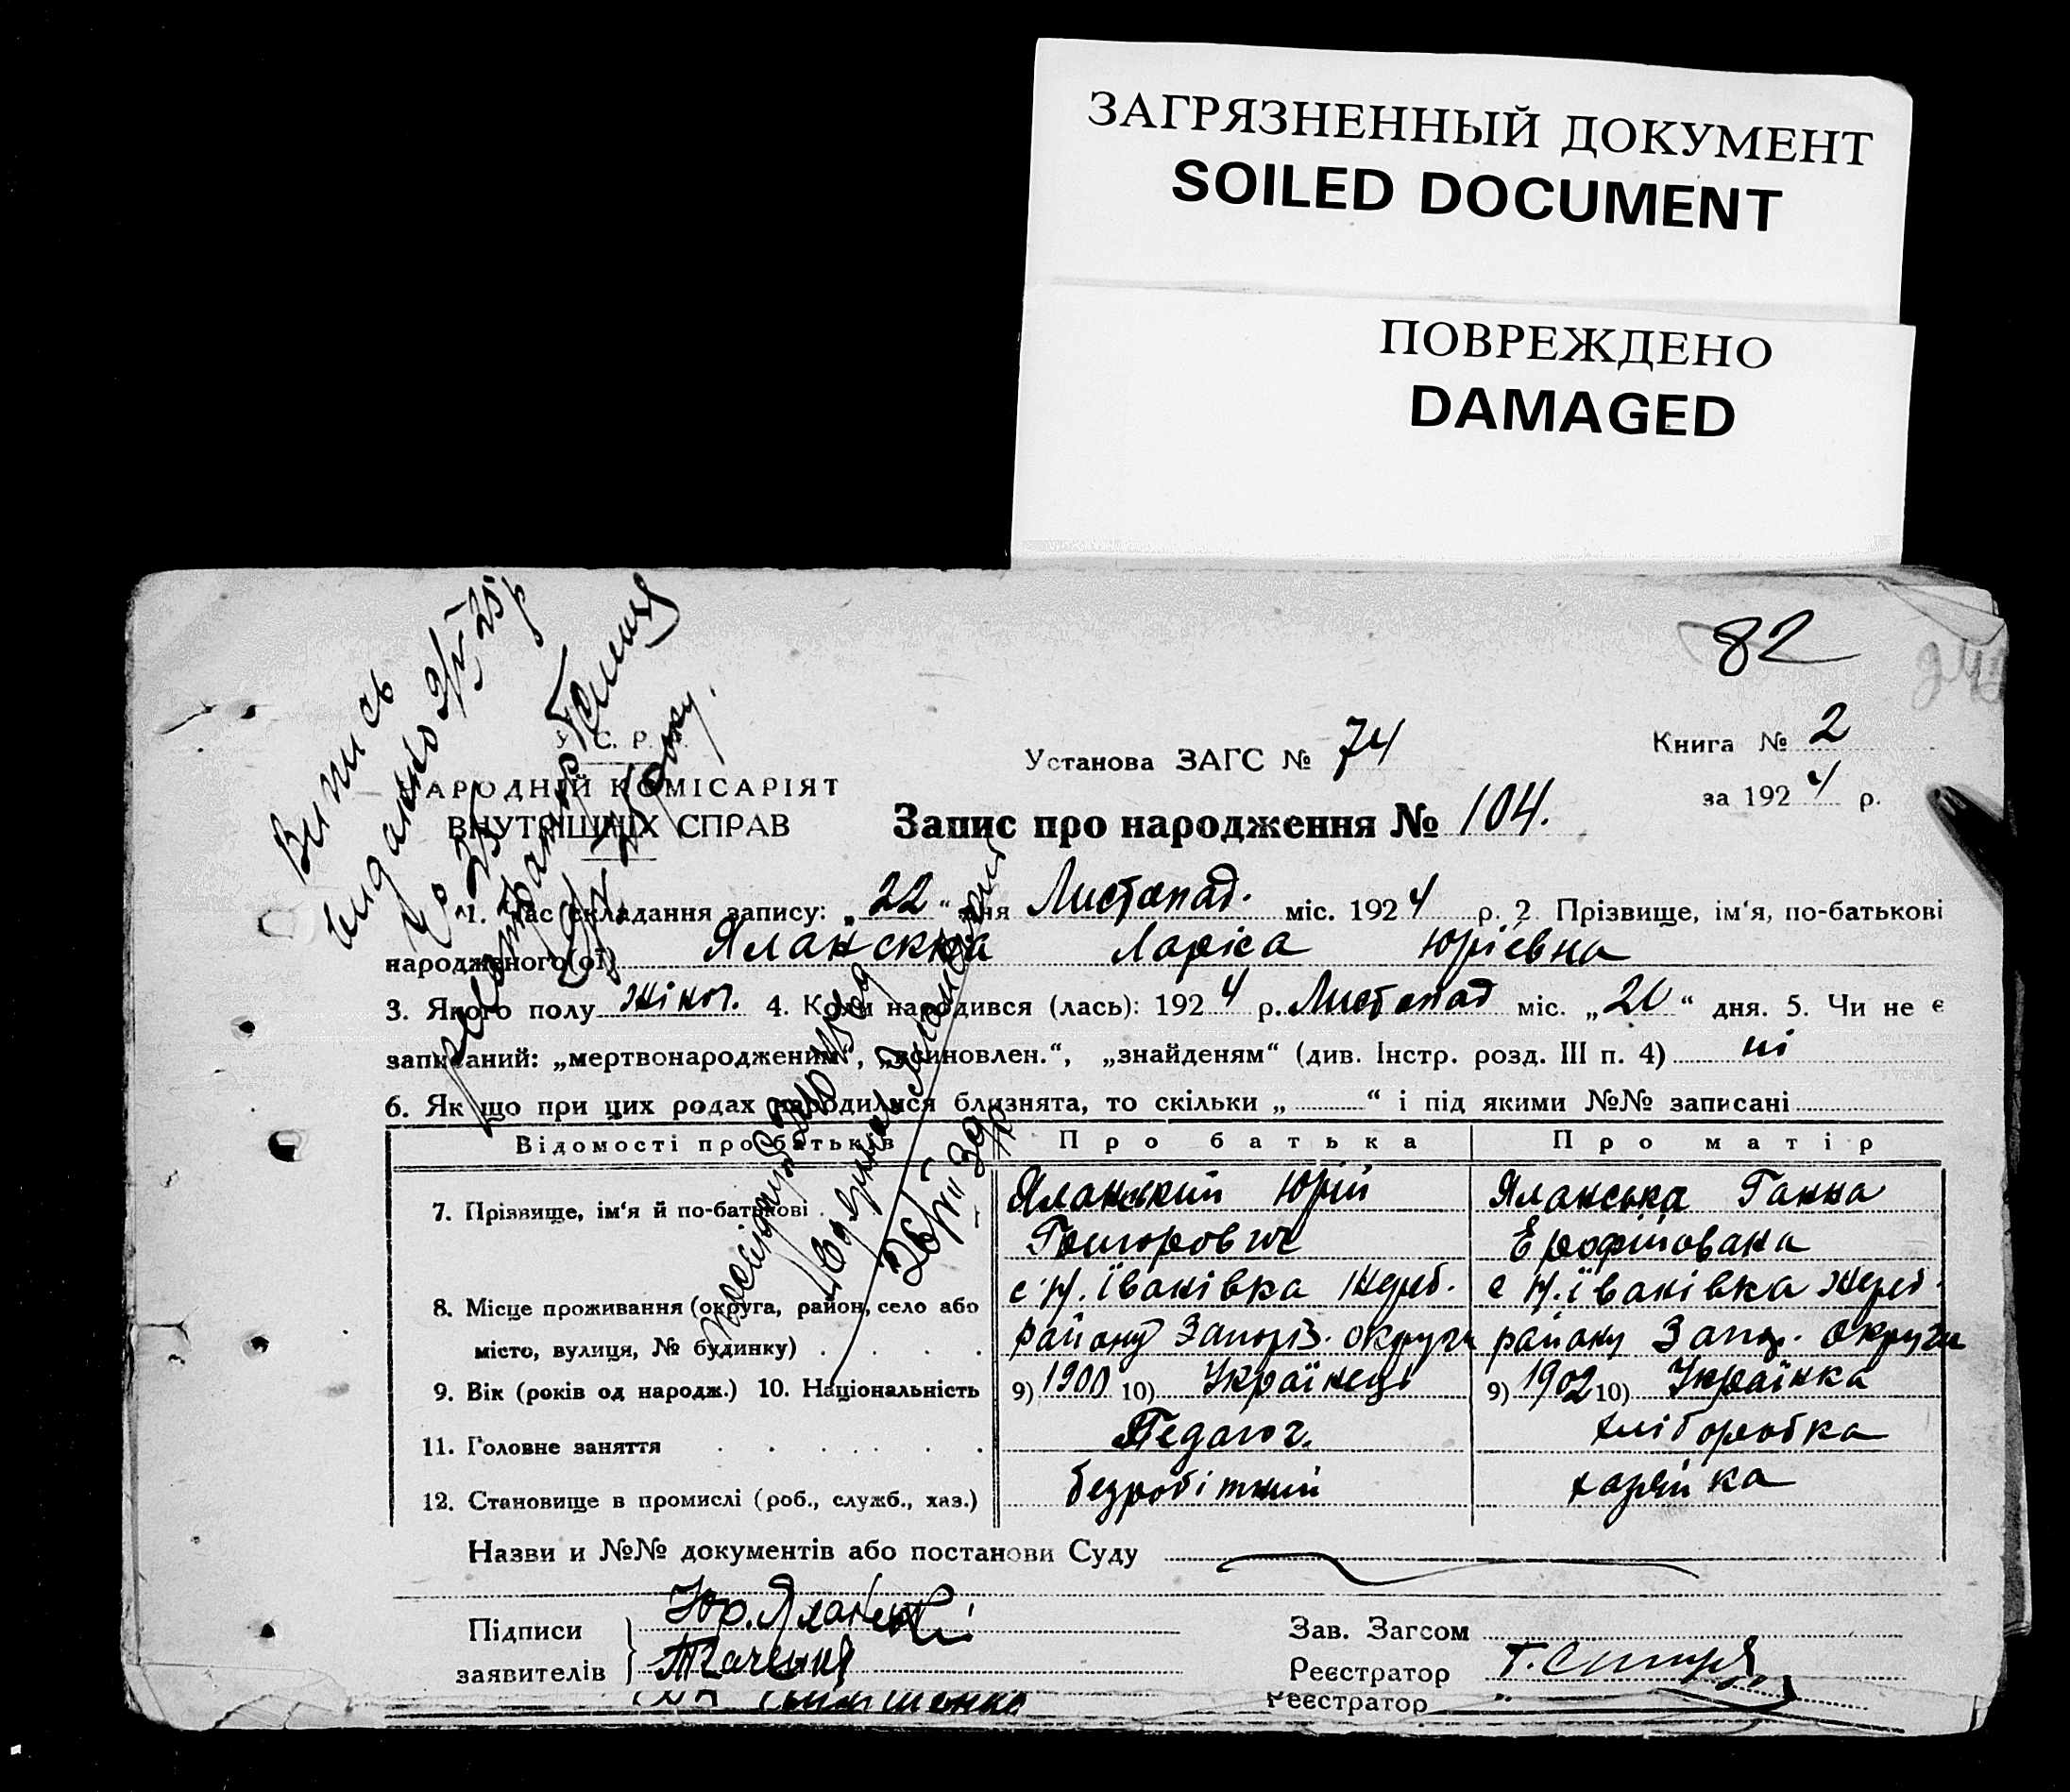 ЗАГРЯЗНЕННЫЙ ДОКУМЕНТ
SOILED DOCUMENT
ПОВРЕЖДЕНО
DAMAGED
82
Випись
видано 9/V 25 р
У. С. Р. Р.
НАРОДНІЙ КОМІСАРІЯТ
ВНУТРІШНІХ СПРАВ
Установа ЗАГС № 74
Книга № 2
за 1924 р.
Запис про народження № 104.
1. Час складання запису: „22“ дня Листопад. міс. 1924 р. 2. Прізвище, ім'я, по-батькові
народженого(ої) Яланскка Ларіса Юріевна
3. Якого полу жіноч. 4. Коли народився (лась): 1924 р. Листопад міс. „20“ дня. 5. Чи не є
записаний: „мертвонародженим“, „усиновлен.“, „знайденям“ (див. Інстр. розд. III п. 4) ні
6. Як що при цих родах народилися близнята, то скільки „ “ і під якими №№ записані
Відомості про батьків Про батька Про матір
7. Прізвище, ім'я й по-батькові Яланський Юрій Яланська Ганна
Григорович Ерофіїована
с. Н. Іванівка Жереб. с Н. Іванівка Жереб.
8. Місце проживання (округа, район, село або
місто, вулиця, № будинку) району Запоріз. округи району Запор. округи
9. Вік (років од народж.) 10. Національність 9) 1900 10) Українець 9) 1902 10) Українка
11. Головне заняття Педагог. хліборобка
12. Становище в промислі (роб., служб., хаз.) безробітний хазяйка
Назви и №№ документів або постанови Суду
26/VII 39 р
Підписи Юр. Яланський Зав. Загсом
заявителів Ткаченко Реєстратор Г.
Реєстратор